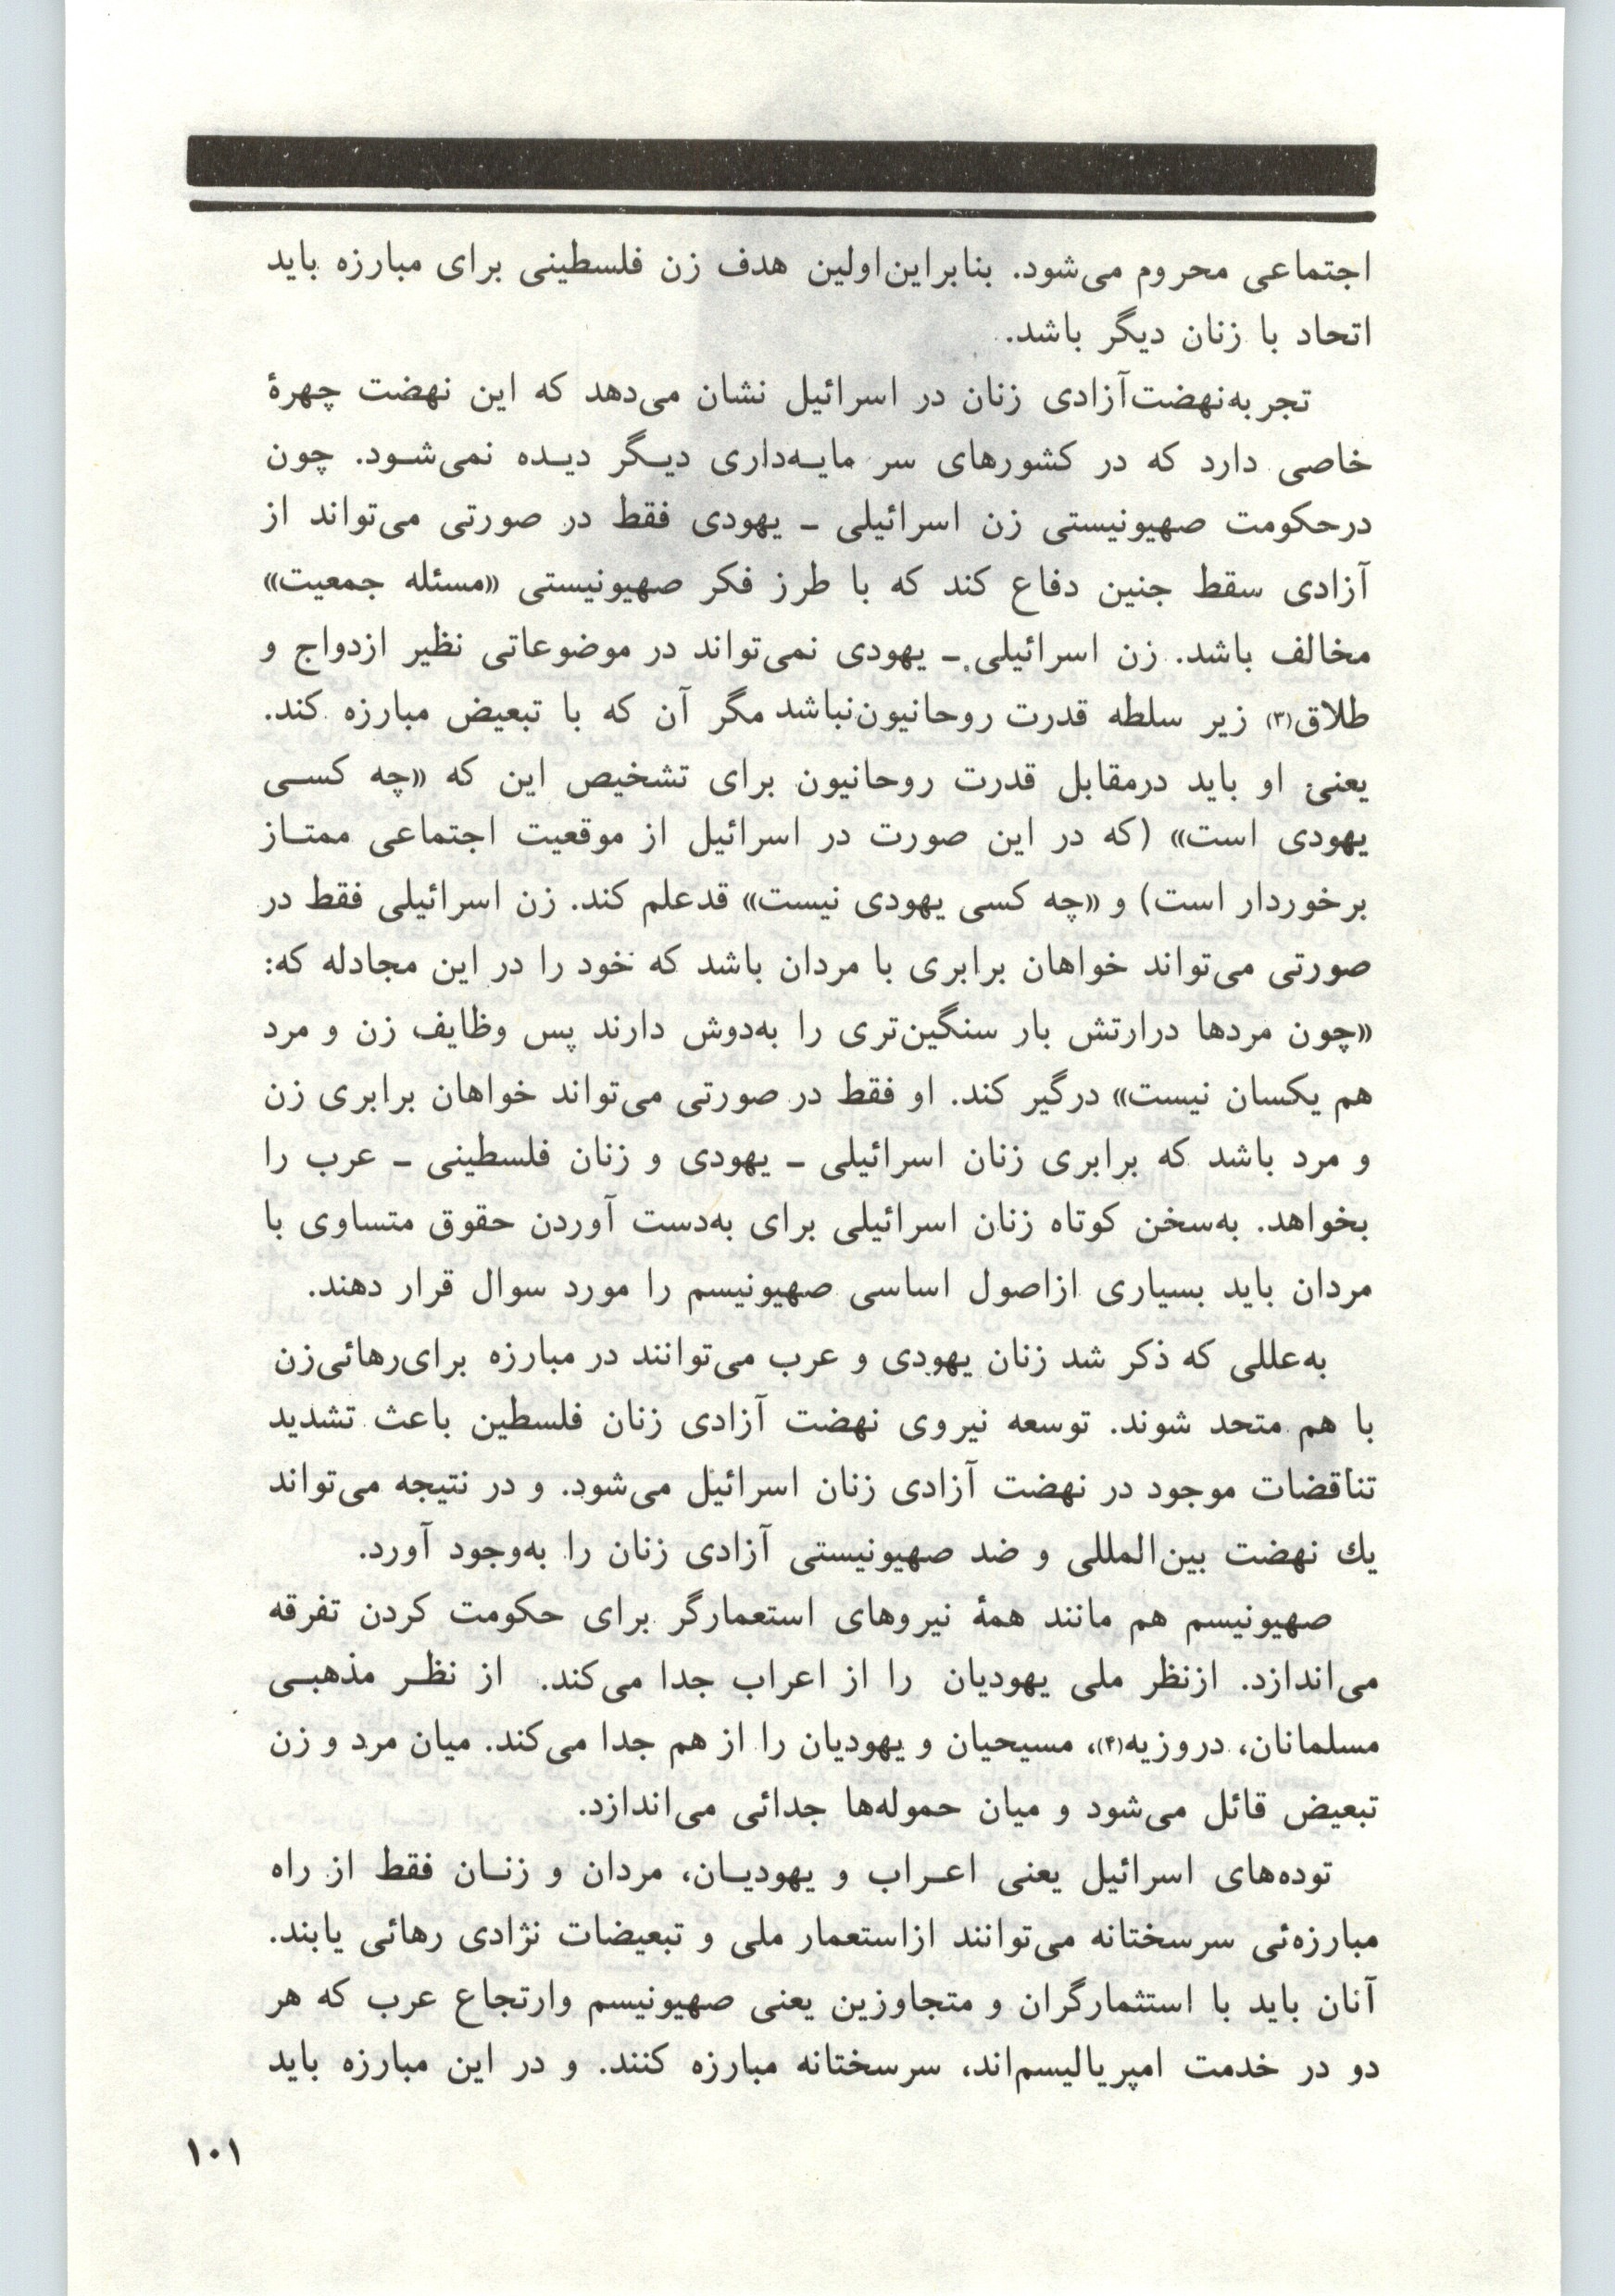 اجتماعی محروم می‌شود. بنابراین‌اولین هدف زن فلسطینی برای مبارزه باید
اتحاد با زنان دیگر باشد.
تجربه‌نهضت‌آزادی زنان در اسرائیل نشان می‌دهد که این نهضت چهرهٔ
خاصی دارد که در کشورهای سر مایه‌داری دیگر دیده نمی‌شود. چون
درحکومت صهیونیستی زن اسرائیلی ـ یهودی فقط در صورتی می‌تواند از
آزادی سقط جنین دفاع کند که با طرز فکر صهیونیستی «مسئله جمعیت»
مخالف باشد. زن اسرائیلی ـ یهودی نمی‌تواند در موضوعاتی نظیر ازدواج و
طلاق(۳) زیر سلطه قدرت روحانیون‌نباشد مگر آن که با تبعیض مبارزه کند.
یعنی او باید درمقابل قدرت روحانیون برای تشخیص این که «چه کسی
یهودی است» (که در این صورت در اسرائیل از موقعیت اجتماعی ممتاز
برخوردار است) و «چه کسی یهودی نیست» قدعلم کند. زن اسرائیلی فقط در
صورتی می‌تواند خواهان برابری با مردان باشد که خود را در این مجادله که:
«چون مردها درارتش بار سنگین‌تری را به‌دوش دارند پس وظایف زن و مرد
هم یکسان نیست» درگیر کند. او فقط در صورتی می‌تواند خواهان برابری زن
و مرد باشد که برابری زنان اسرائیلی ـ یهودی و زنان فلسطینی ـ عرب را
بخواهد. به‌سخن کوتاه زنان اسرائیلی برای به‌دست آوردن حقوق متساوی با
مردان باید بسیاری ازاصول اساسی صهیونیسم را مورد سوال قرار دهند.
به‌عللی که ذکر شد زنان یهودی و عرب می‌توانند در مبارزه برای‌رهائی‌زن
با هم متحد شوند. توسعه نیروی نهضت آزادی زنان فلسطین باعث تشدید
تناقضات موجود در نهضت آزادی زنان اسرائیل می‌شود. و در نتیجه می‌تواند
یك نهضت بین‌المللی و ضد صهیونیستی آزادی زنان را به‌وجود آورد.
صهیونیسم هم مانند همهٔ نیروهای استعمارگر برای حکومت کردن تفرقه
می‌اندازد. ازنظر ملی یهودیان را از اعراب جدا می‌کند. از نظر مذهبی
مسلمانان، دروزیه(۴)، مسیحیان و یهودیان را از هم جدا می‌کند. میان مرد و زن
تبعیض قائل می‌شود و میان حموله‌ها جدائی می‌اندازد.
توده‌های اسرائیل یعنی اعراب و یهودیان، مردان و زنان فقط از راه
مبارزه‌ئی سرسختانه می‌توانند ازاستعمار ملی و تبعیضات نژادی رهائی یابند.
آنان باید با استثمارگران و متجاوزین یعنی صهیونیسم وارتجاع عرب که هر
دو در خدمت امپریالیسم‌اند، سرسختانه مبارزه کنند. و در این مبارزه باید
۱۰۱